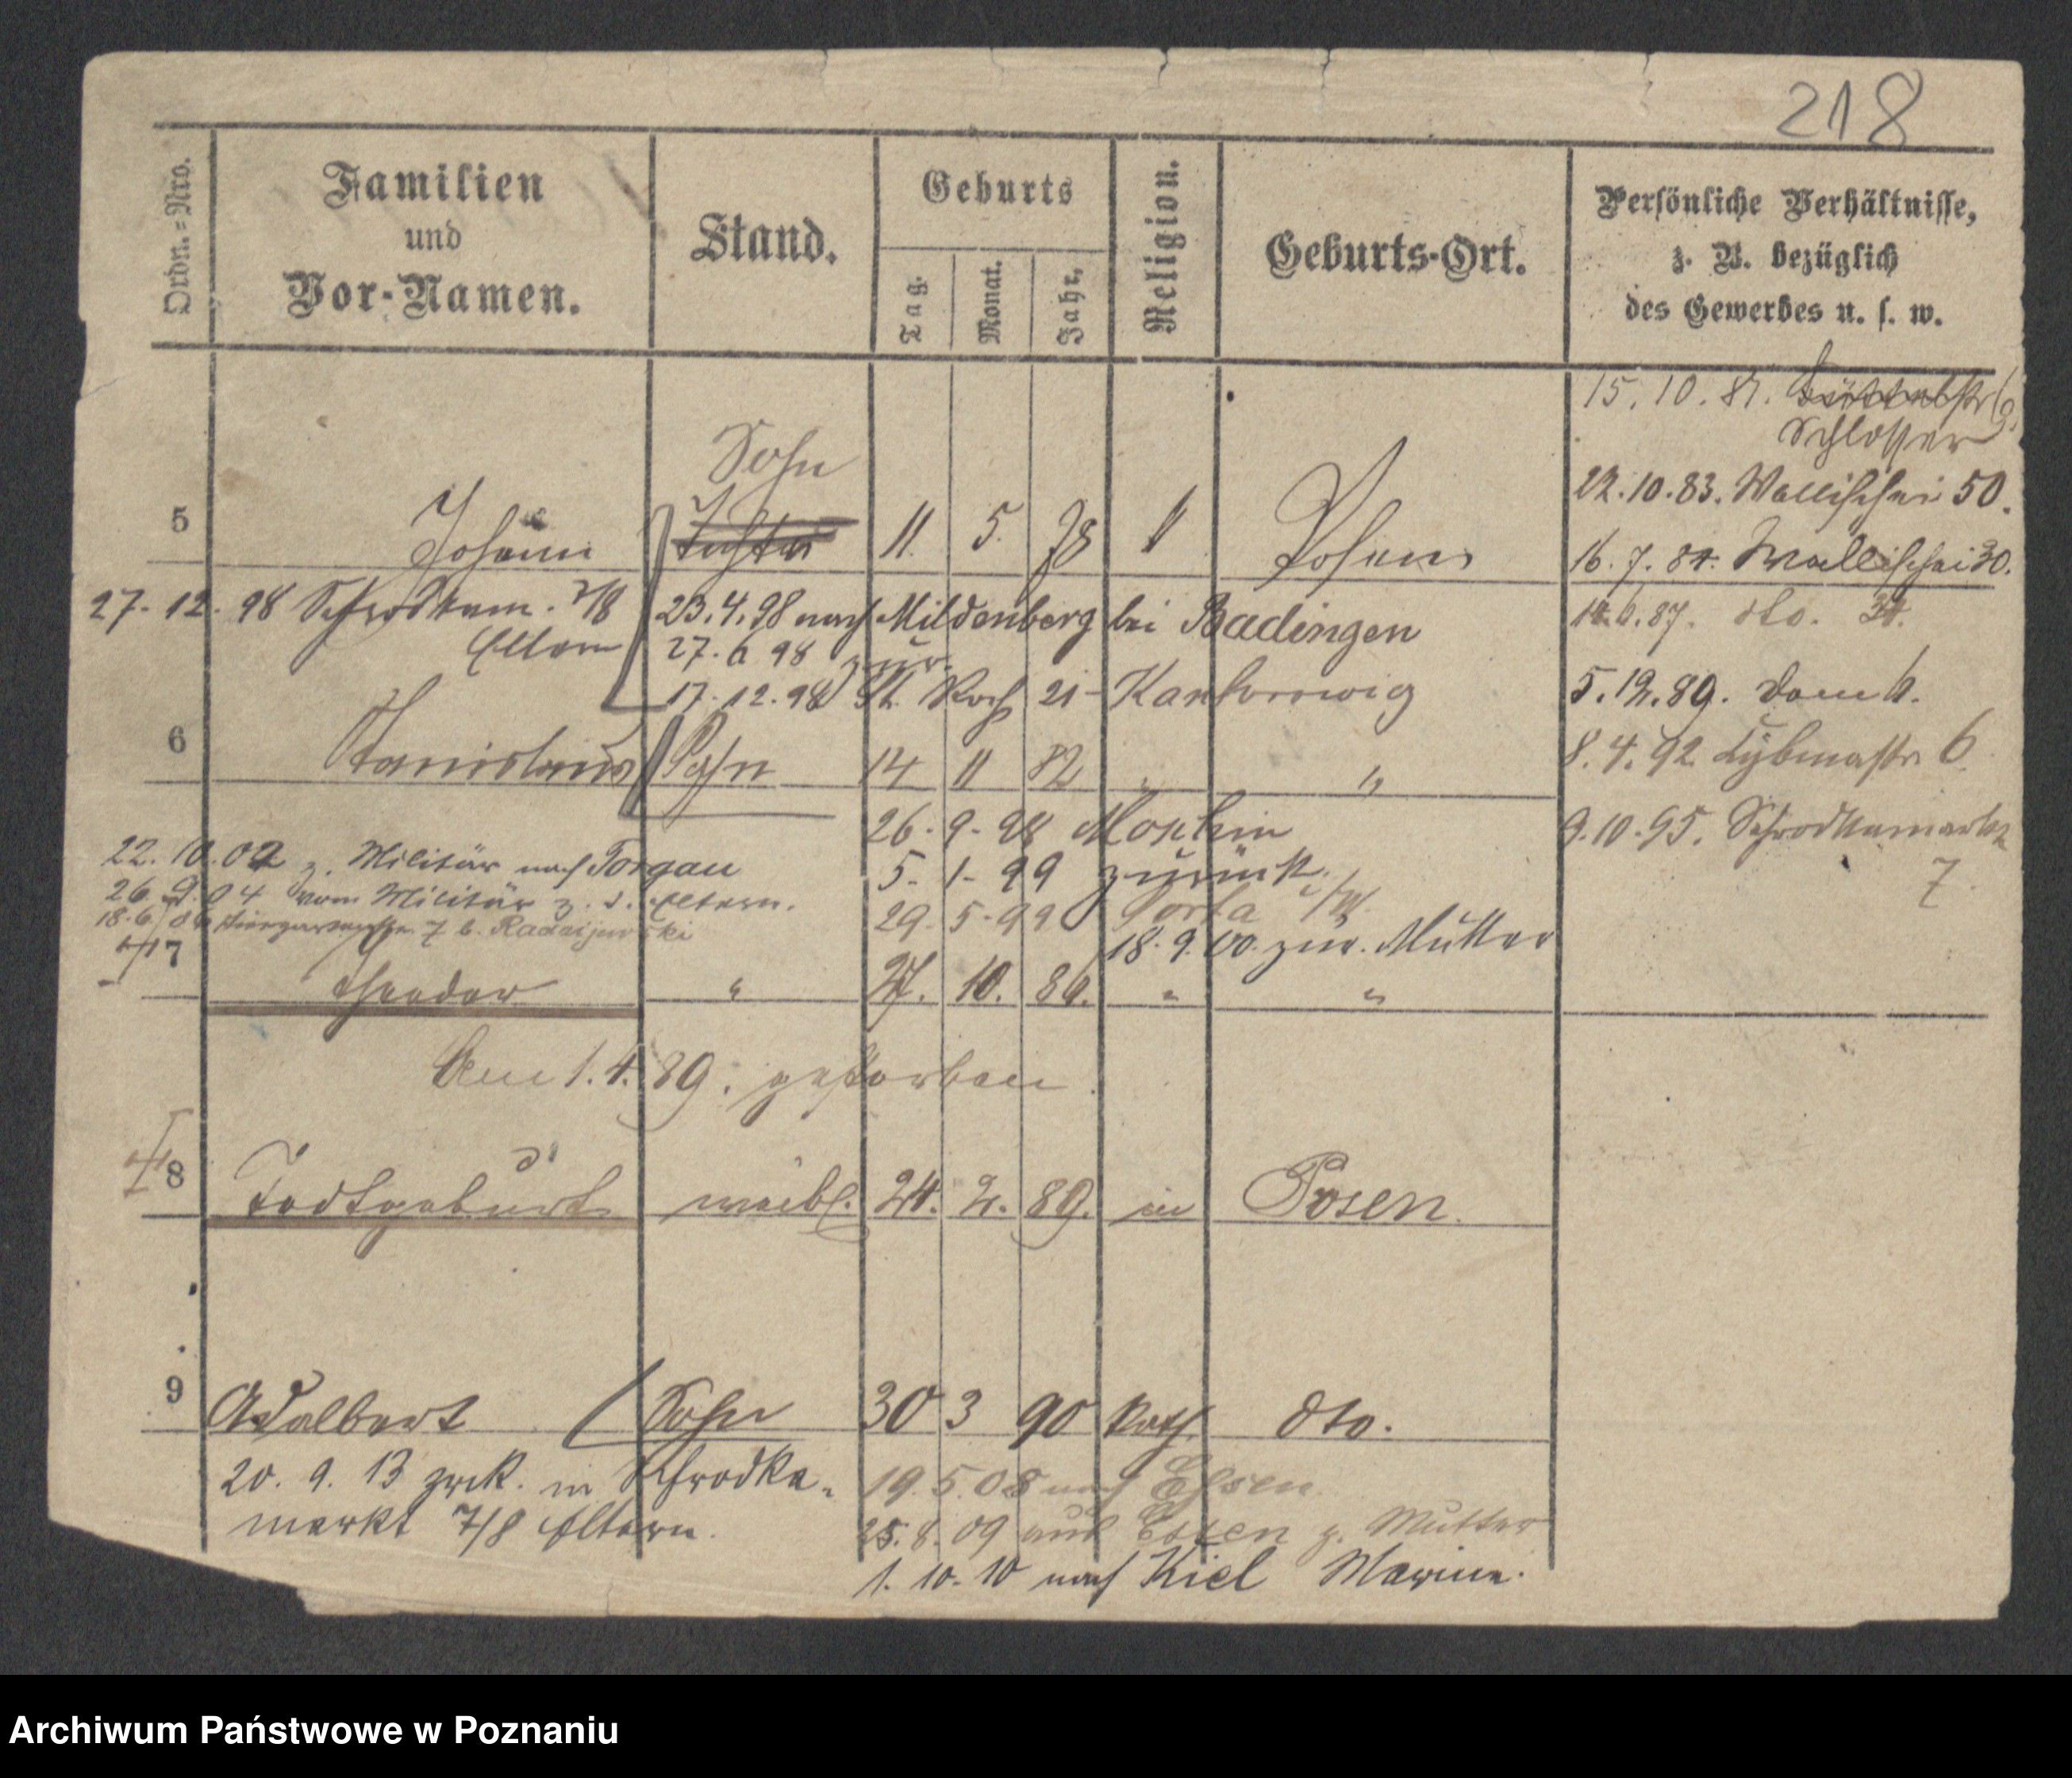 218
Ordn.=Nro.
Familien
und
Vor-Namen.
Stand.
Geburts
Tag.
Monat.
Jahr.
Religion.
Geburts-Ort.
Persönliche Verhältnisse,
z. B. bezüglich
des Gewerbes u. s. w.
15. 10. 81.
Schlosser
22. 10. 83. Wallischei 50.
16. 7. 84. Wallischei 30.
6. 87. dto. 34.
5. 12. 89. Dom 6.
8. 4. 92 Lybinastr 6
9. 10. 95. Schrodkamarkt
7.
Sohn
5 Johann Tochter 11. 5. 78 Posen
27. 12. 98 Schrodkam. 7/8
Eltern
23. 4. 98 nach Mildenberg bei Badingen
27. 6 98 zur.
17. 12. 98 St. Roch 21
6 Stanislaus Sohn 14 11 82 " "
26. 9. 98 Moschin
5. 1. 99 zurück.
29. 5. 99
18. 9. 00. zur. Mutter
22. 10. 02 z. Militär nach Torgau
26. 9. 04 vom Militär z. d. Eltern.
18. 6. 06 7 b.
7 Theodor " 27. 10. 86. " "
Am 1. 4. 89. gestorben
8 Todtgeburt weibl. 24. 2. 89. in Posen.
9 Adalbert Sohn 30 3 90 kath. dto.
20. 9. 13 zrk. in Schrodka-
markt 7/8 Eltern.
19. 5. 08 nach Essen.
25. 8. 09 aus Essen z. Mutter
1. 10. 10 nach Kiel Marine.
Archiwum Państwowe w Poznaniu